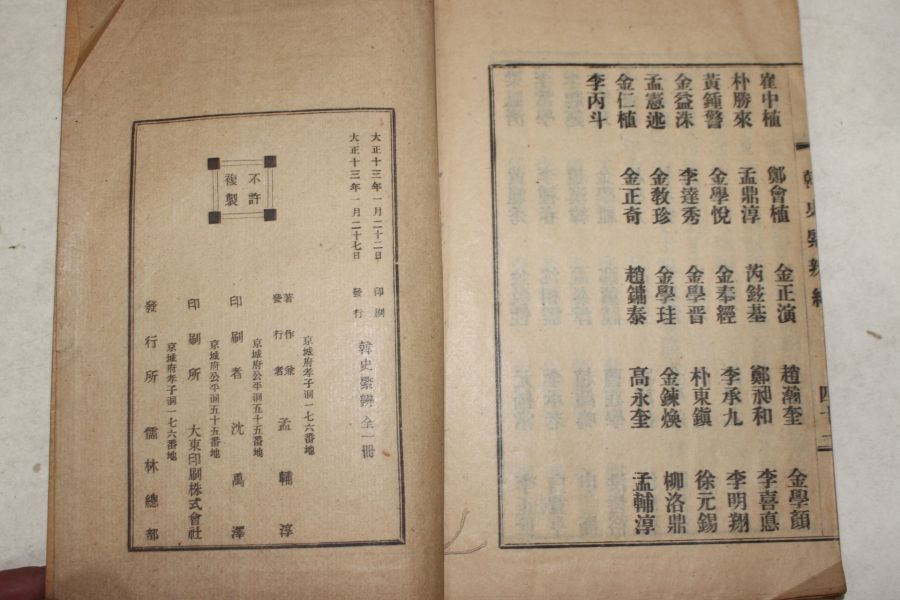 韓史緊辨
四十二
崔中植 鄭會植 金正演 趙瀚奎 金學顏
朴勝來 孟鼎淳 芮鉉基 鄭昶和 李喜悳
黃鍾警 金學悅 金奉經 李承九 李明翔
金益洙 李達秀 金學晋 朴東鎭 徐元錫
孟憲述 金敎珍 金學珪 金鍊煥 柳洛鼎
金仁植 金正奇 趙鏞泰 高永奎 孟輔淳
李丙斗
大正十三年一月二十二日 印刷
大正十三年一月二十七日 發行
韓史緊辨 全一冊
不許
複製
京城府孝子洞一七六番地
著作兼
發行者 孟輔淳
京城府公平洞五十五番地
印刷者 沈禹澤
京城府公平洞五十五番地
印刷所 大東印刷株式會社
京城府孝子洞一七六番地
發行所 儒林總部